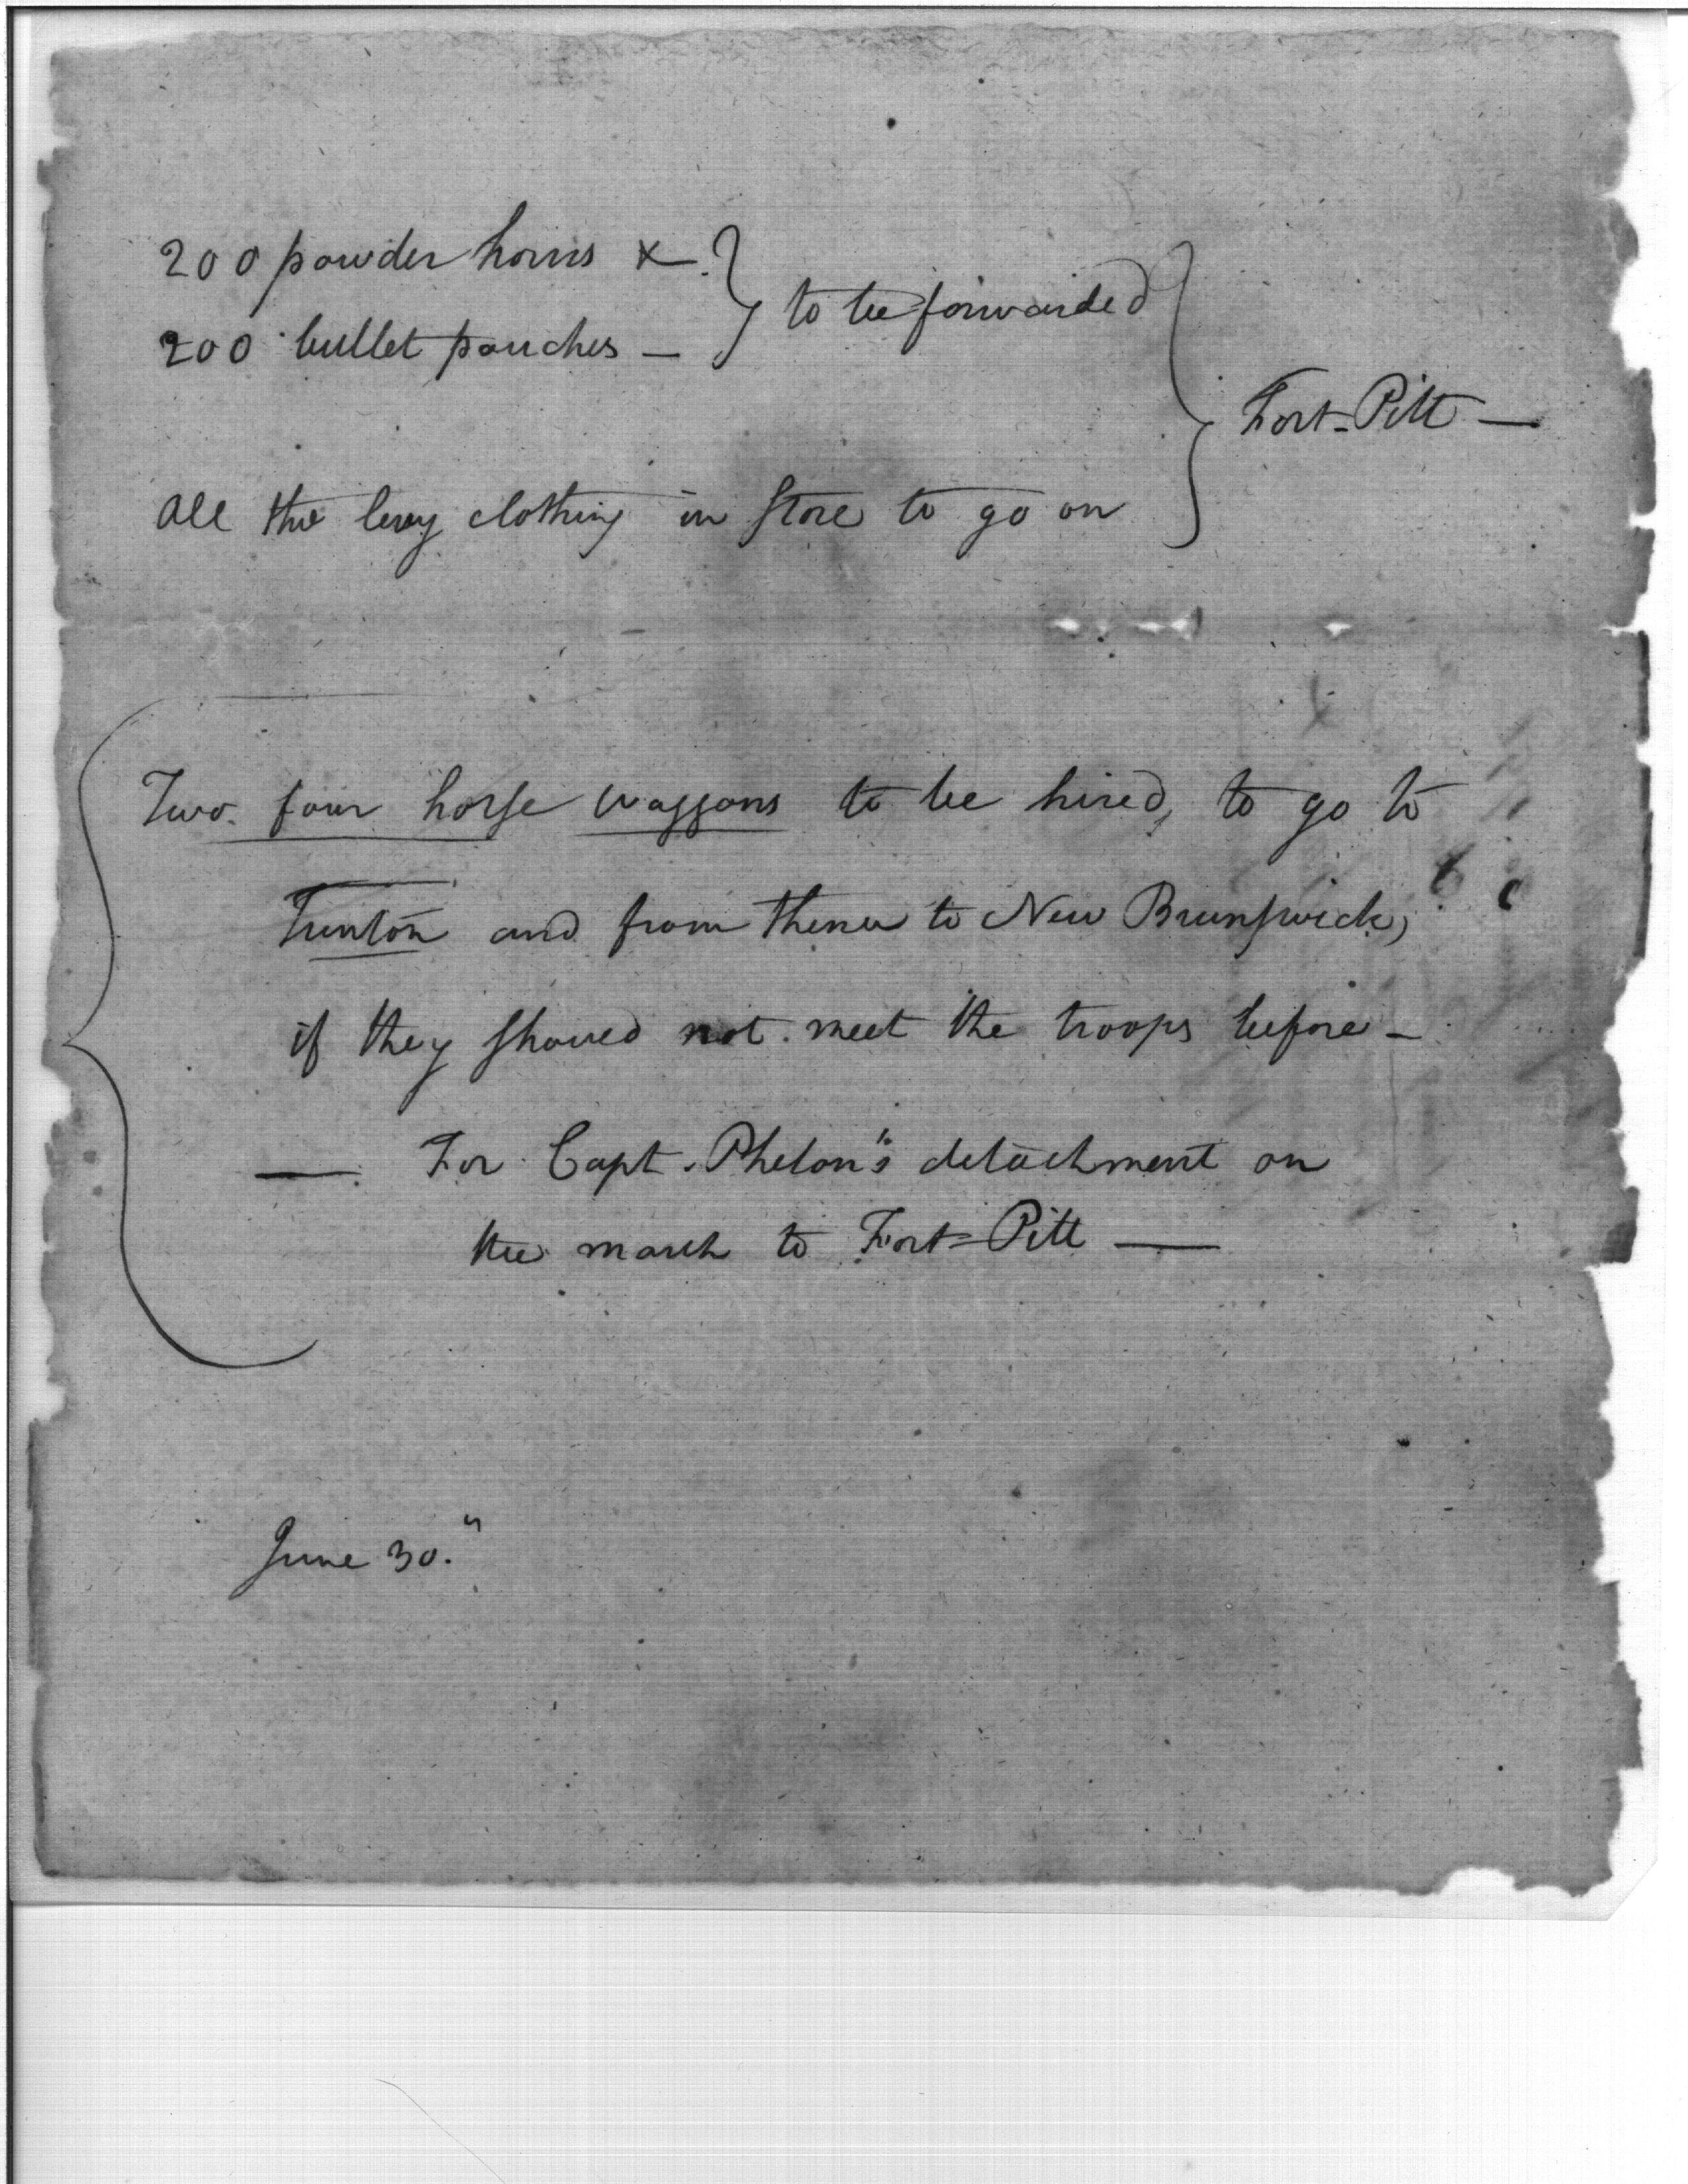 200 powder horns x
to be forwarded
200 bullet pouches —
Fort-Pitt —
All the levy clothing in Store to go on
Two four horse waggons to be hired, to go to
Trenton and from thence to New Brunswick,
if they should not meet the troops before —
— For Capt. Phelon's detachment on
the march to Fort=Pitt —
June 30."